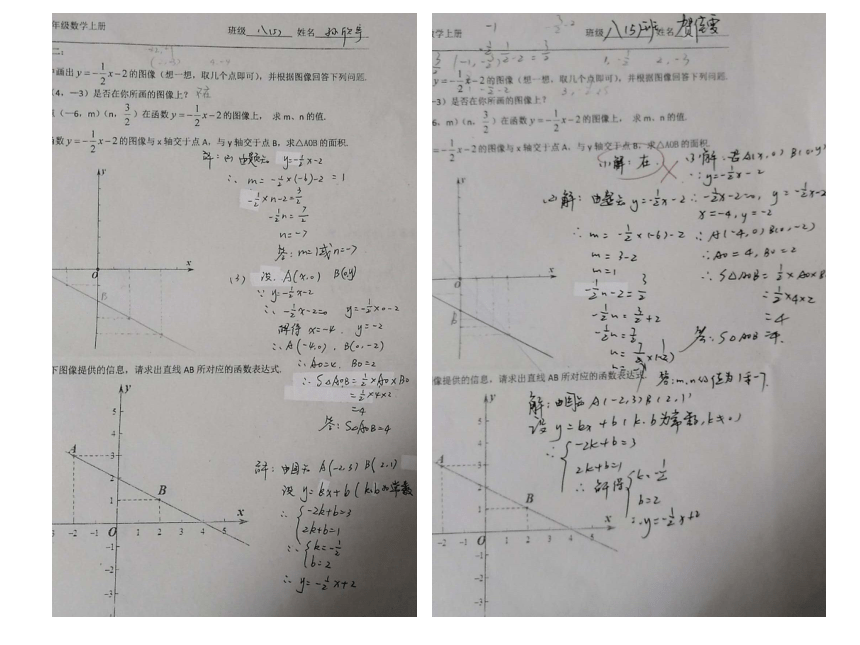 年级数学上册 班级 八(5) 姓名
画出 y=-1/2x-2的图像(想一想,取几个点即可),并根据图像回答下列问题.
(4,-3)是否在你所画的图像上? 不在
(-6,m)(n,3/2)在函数 y=-1/2x-2的图像上, 求 m、n 的值.
数 y=-1/2x-2的图像与 x 轴交于点 A,与 y 轴交于点 B,求△AOB 的面积.
解:(2) 由题知 y=-1/2x-2
∴ m=-1/2×(-6)-2=1
-1/2×n-2=3/2
-1/2n=7/2
n=-7
答:m=1或n=-7
(3) 设 A(x,0) B(0,y)
∵ y=-1/2x-2
∴ -1/2x-2=0 y=-1/2×0-2
解得 x=-4. y=-2
∴ A(-4,0), B(0,-2)
∴ AO=4, BO=2
∴ S△AOB=1/2×AO×BO
=1/2×4×2
=4
答:S△AOB=4
y
O
x
B
下图像提供的信息,请求出直线 AB 所对应的函数表达式.
解:由图知 A(-2,3) B(2,1)
设 y=kx+b (k.b为常数
∴ {-2k+b=3
2k+b=1
∴ {k=-1/2
b=2
∴ y=-1/2x+2
y
5
4
A
3
2
1
B
x
-2 -1 O 1 2 3 4 5
-1
-2
-3
学上册 -1 班级 八(5)班 姓名
y=-1/2x-2的图像(想一想,取几个点即可),并根据图像回答下列问题.
-3)是否在你所画的图像上?
6,m)(n,3/2)在函数 y=-1/2x-2的图像上, 求 m、n 的值.
=-1/2x-2的图像与 x 轴交于点 A,与 y 轴交于点 B,求△AOB 的面积.
(1)解:在.
(2)解:由题知 y=-1/2x-2
∴ m=-1/2×(-6)-2
m=3-2
m=1
-1/2n-2=3/2
-1/2n=3/2+2
-1/2n=7/2
n=7/2×(-2)
n=-7
答:m,n的值为1和-7.
(3)解:若A(x,0) B(0,y)
∵ y=-1/2x-2
∴ -1/2x-2=0, y=-1/2x-2
x=-4, y=-2
∴ A(-4,0) B(0,-2)
∴ AO=4, BO=2
∴ S△AOB=1/2×AO×B
=1/2×4×2
=4
答:S△AOB=4.
y
O
x
b
像提供的信息,请求出直线 AB 所对应的函数表达式.
解:由图知 A(-2,3) B(2,1)
设 y=kx+b(k.b为常数,k≠0)
∴ {-2k+b=3
2k+b=1
∴ 解得 {k=-1/2
b=2
∴ y=-1/2x+2
y
5
4
A
3
2
1
B
x
-2 -1 O 1 2 3 4 5
-1
-2
-3